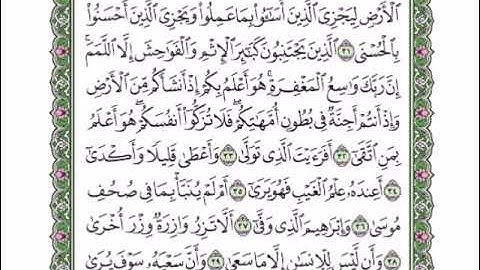 ٱلْأَرْضِ لِيَجْزِىَ ٱلَّذِينَ أَسَٰٓـُٔوا۟ بِمَا عَمِلُوا۟ وَيَجْزِىَ ٱلَّذِينَ أَحْسَنُوا۟
بِٱلْحُسْنَى ٣١ ٱلَّذِينَ يَجْتَنِبُونَ كَبَٰٓئِرَ ٱلْإِثْمِ وَٱلْفَوَٰحِشَ إِلَّا ٱللَّمَمَ ۚ
إِنَّ رَبَّكَ وَٰسِعُ ٱلْمَغْفِرَةِ ۚ هُوَ أَعْلَمُ بِكُمْ إِذْ أَنشَأَكُم مِّنَ ٱلْأَرْضِ
وَإِذْ أَنتُمْ أَجِنَّةٌ فِى بُطُونِ أُمَّهَٰتِكُمْ ۖ فَلَا تُزَكُّوٓا۟ أَنفُسَكُمْ ۖ هُوَ أَعْلَمُ
بِمَنِ ٱتَّقَىٰٓ ٣٢ أَفَرَءَيْتَ ٱلَّذِى تَوَلَّىٰ ٣٣ وَأَعْطَىٰ قَلِيلًا وَأَكْدَىٰٓ
٣٤ أَعِندَهُۥ عِلْمُ ٱلْغَيْبِ فَهُوَ يَرَىٰٓ ٣٥ أَمْ لَمْ يُنَبَّأْ بِمَا فِى صُحُفِ
مُوسَىٰ ٣٦ وَإِبْرَٰهِيمَ ٱلَّذِى وَفَّىٰٓ ٣٧ أَلَّا تَزِرُ وَازِرَةٌ وِزْرَ أُخْرَىٰ
٣٨ وَأَن لَّيْسَ لِلْإِنسَٰنِ إِلَّا مَا سَعَىٰ ٣٩ وَأَنَّ سَعْيَهُۥ سَوْفَ يُرَىٰ